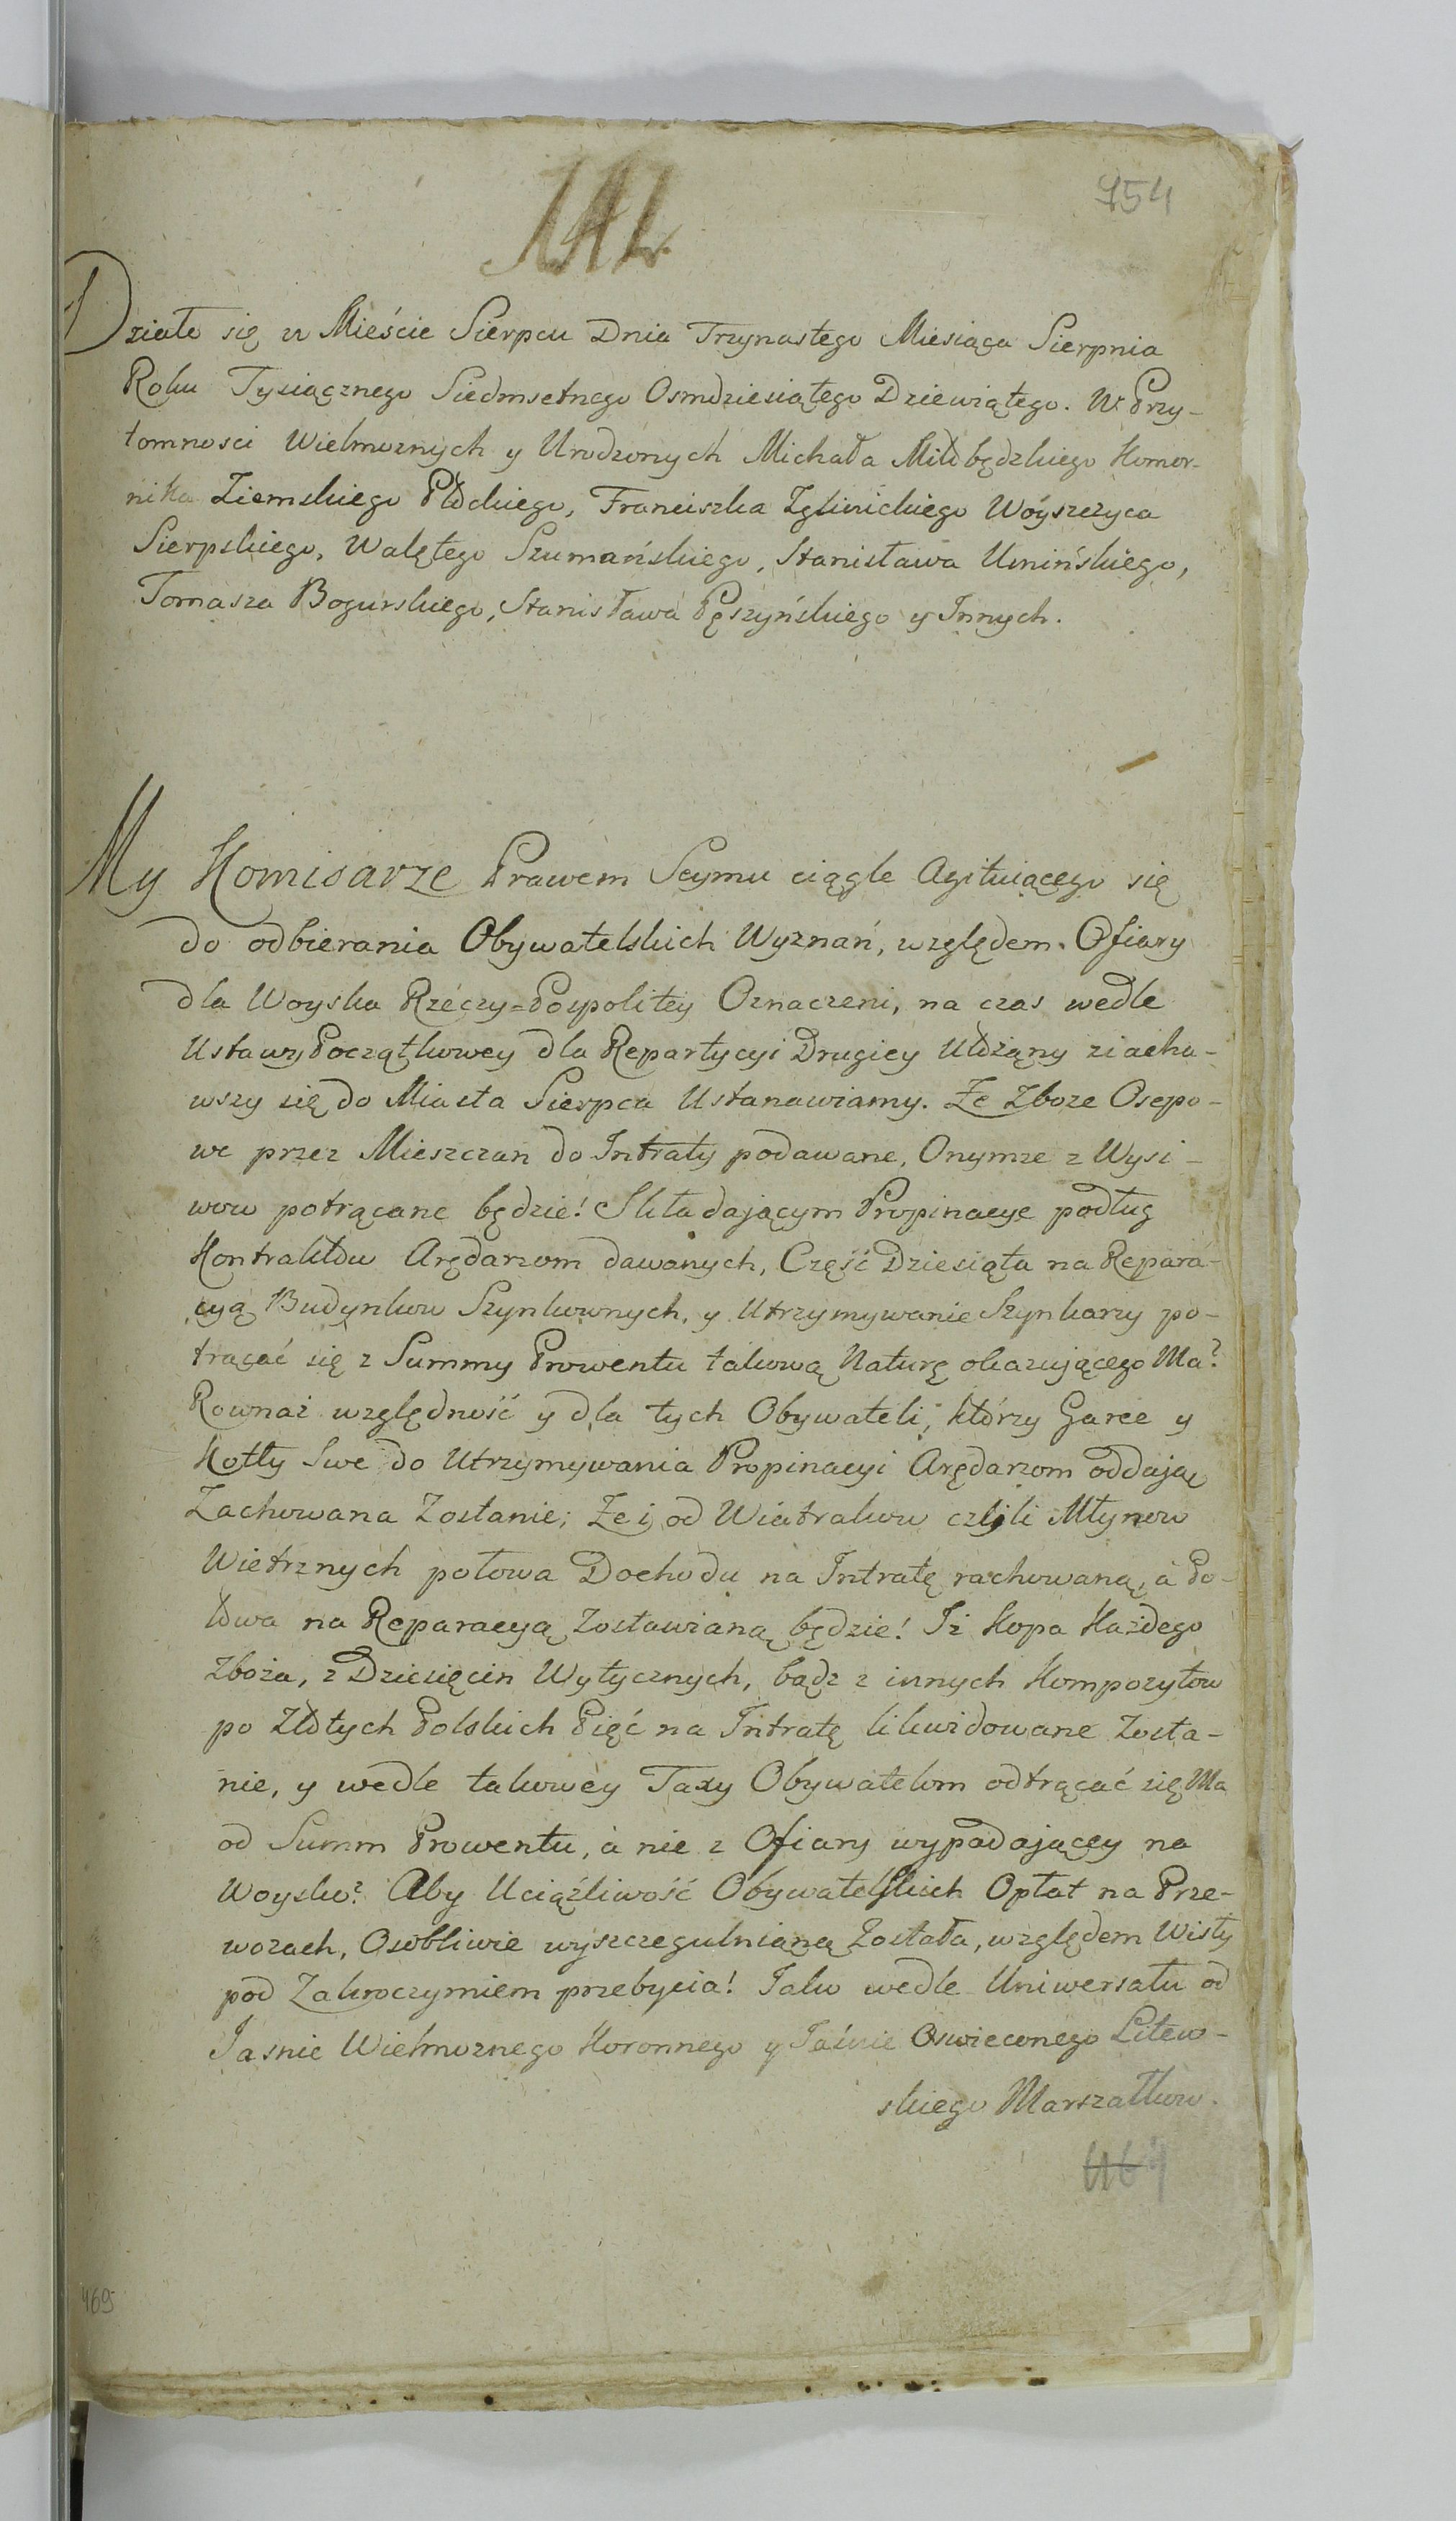 754
Działo się w Mieście Sierpcu Dnia Trzynastego Miesiąca Sierpnia
Roku Tysiącznego Siedmsetnego Osmdziesiątego Dziewiątego. W Przy-
tomnosci Wielmoznych y Urodzonych Michała Miłobędzkiego Komor-
nika Ziemskiego Płockiego, Franciszka Zglinickiego Woyszczyca
Sierpskiego, Walętego Szumańskiego, Stanisława Umińskiego,
Tomasza Bogurskiego, Stanisława Pęszyńskiego y Innych.
My Komisarze Prawem Seymu ciągle Agituiącego się
do odbierania Obywatelskich Wyznań, względem Ofiary
dla Woyska Rzeczy=Pospolitey Oznaczeni, na czas wedle
Ustawy Początkowey dla Repartycyi Drugiey Ułożąny ziacha-
wszy się do Miasta Sierpca Ustanawiamy. Ze Zboze Osepo-
we przez Mieszczan do Intraty podawane, Onymze z Wysi-
wow potrącane będzie! Składającym Propinacye podług
Kontraktow Arędarzom dawanych, Część Dziesiąta na Repara-
cyą Budynkow Szynkownych, y Utrzymywanie Szynkarzy po-
trącać się z Summy Prowentu takową Naturę okazującego Ma?
Rownaż względność y dla tych Obywateli, ktorzy Garce y
Kotły Swe do Utrzymywania Propinacyi Arędarzom oddają
Zachowana Zostanie; Ze i od Wiatrakow czyli Młynow
Wietrznych połowa Dochodu na Intratę rachowaną, a Po-
łowa na Reparacyą Zostawianą będzie! Iż Kopa Każdego
Zboża, z Dziesięcin Wytycznych, bądz z innych Kompozytow
po Złotych Polskich Pięć na Intratę likwidowane Zosta-
nie, y wedle takowey Taxy Obywatelom odtrącać się Ma
od Summ Prowentu, a nie z Ofiary wypadającey na
Woysko? Aby Uciążliwość Obywatelskich Opłat na Prze-
wozach, Osobliwie wyszczegulnianą Została, względem Wisły
pod Zakroczymiem przebycia! Jako wedle Uniwersału od
Jasnie Wielmoznego Koronnego y Jaśnie Oswieconego Litew-
skiego Marszałkow.
469